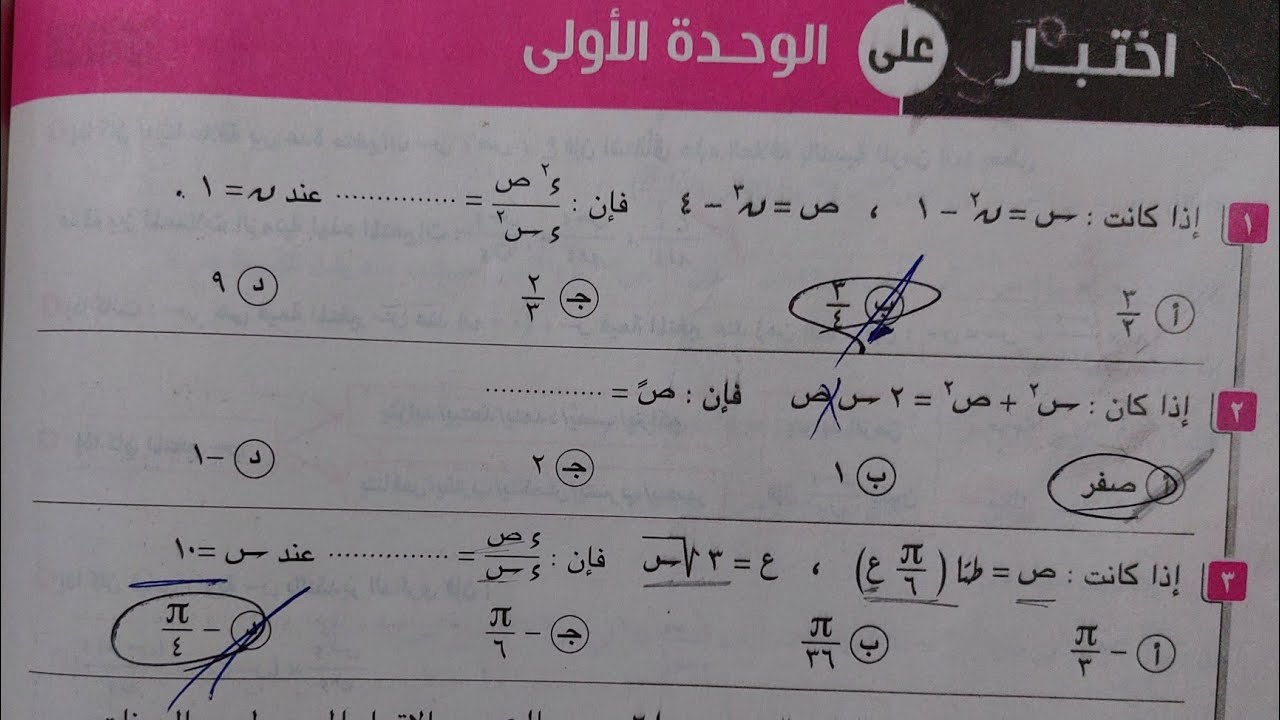 اختبار على الوحدة الأولى
١ إذا كانت : س = ن² − ١ ، ص = ن³ − ٤ فإن : ء² ص / ء س² = .............. عند ن = ١ .
أ ٣/٢ ب ٣/٤ جـ ٢/٣ د ٩
٢ إذا كان : س² + ص² = ٢ س ص فإن : صً = ..............
أ صفر ب ١ جـ ٢ د −١
٣ إذا كانت : ص = طتا (π/٦ ع) ، ع = ٣ √س فإن : ء ص / ء س = .............. عند س = ١٠
أ −π/٣ ب π/٣٦ جـ −π/٦ د −π/٤